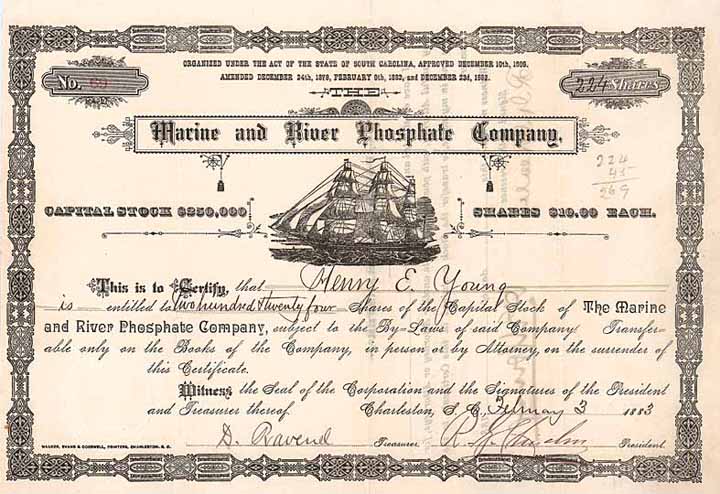 ORGANIZED UNDER THE ACT OF THE STATE OF SOUTH CAROLINA, APPROVED DECEMBER 10th, 1809.
AMENDED DECEMBER 24th, 1878, FEBRUARY 9th, 1882, and DECEMBER 23d, 1882.
No. 69
224 Shares
THE
Marine and River Phosphate Company.
224
45
269
CAPITAL STOCK $250,000
SHARES $10.00 EACH.
This is to Certify, that Henry E. Young
is entitled to Two hundred & twenty four Shares of the Capital Stock of The Marine
and River Phosphate Company, subject to the By-Laws of said Company. Transfer-
able only on the Books of the Company, in person or by Attorney, on the surrender of
this Certificate.
Witness the Seal of the Corporation and the Signatures of the President
and Treasurer thereof. Charleston, S. C. February 3 1883
D. Ravenel Treasurer President.
WALKER, EVANS & COGSWELL, PRINTERS, CHARLESTON, S. C.